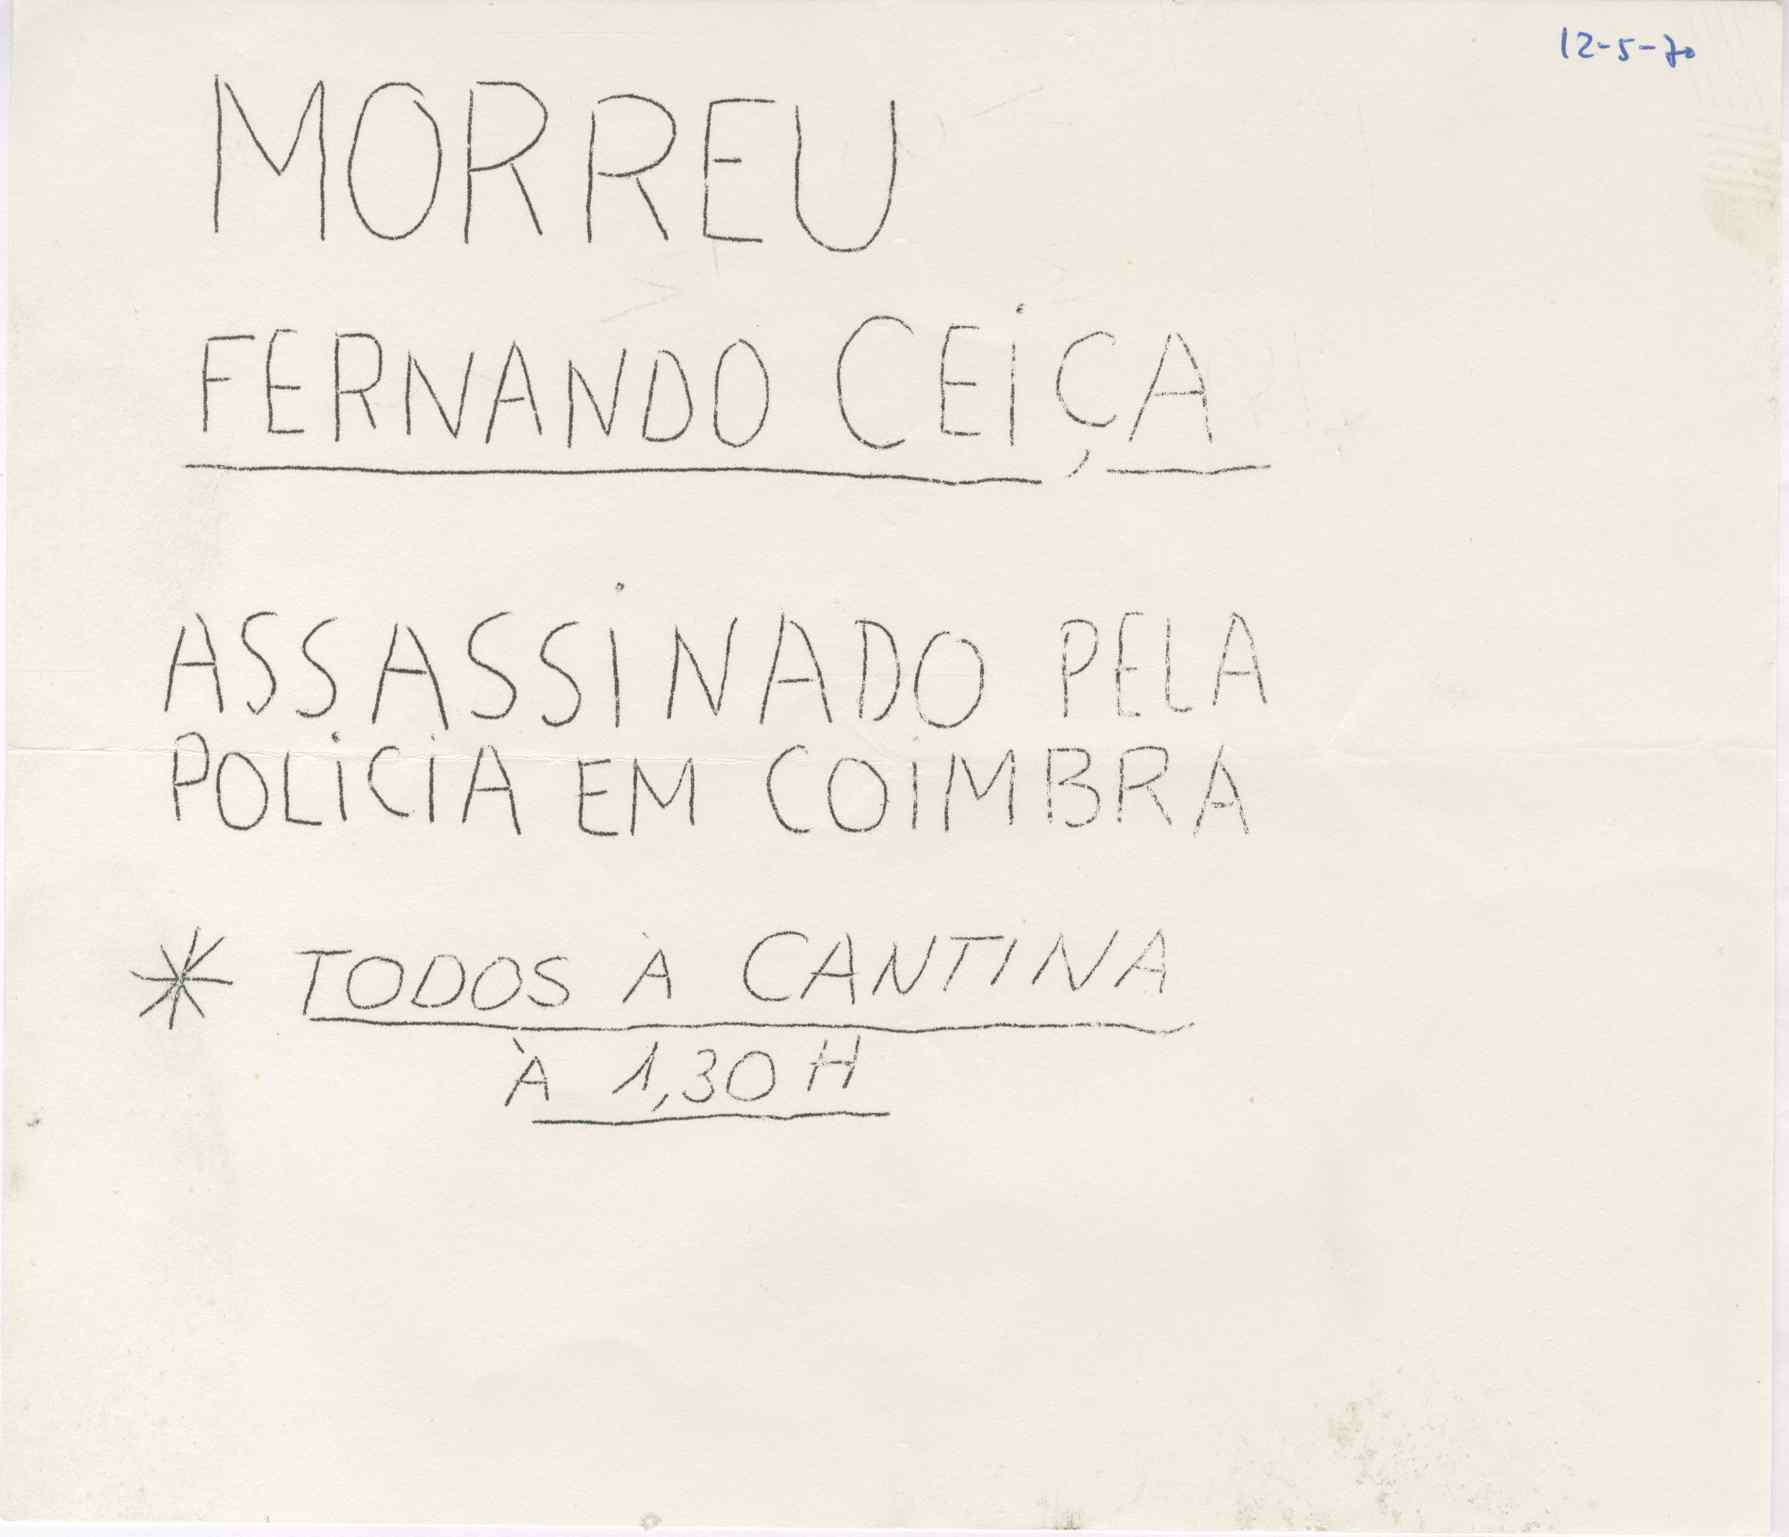 12-5-70
MORREU
FERNANDO CEIÇA
ASSASSINADO PELA
POLICIA EM COIMBRA
* TODOS À CANTINA
À 1,30 H